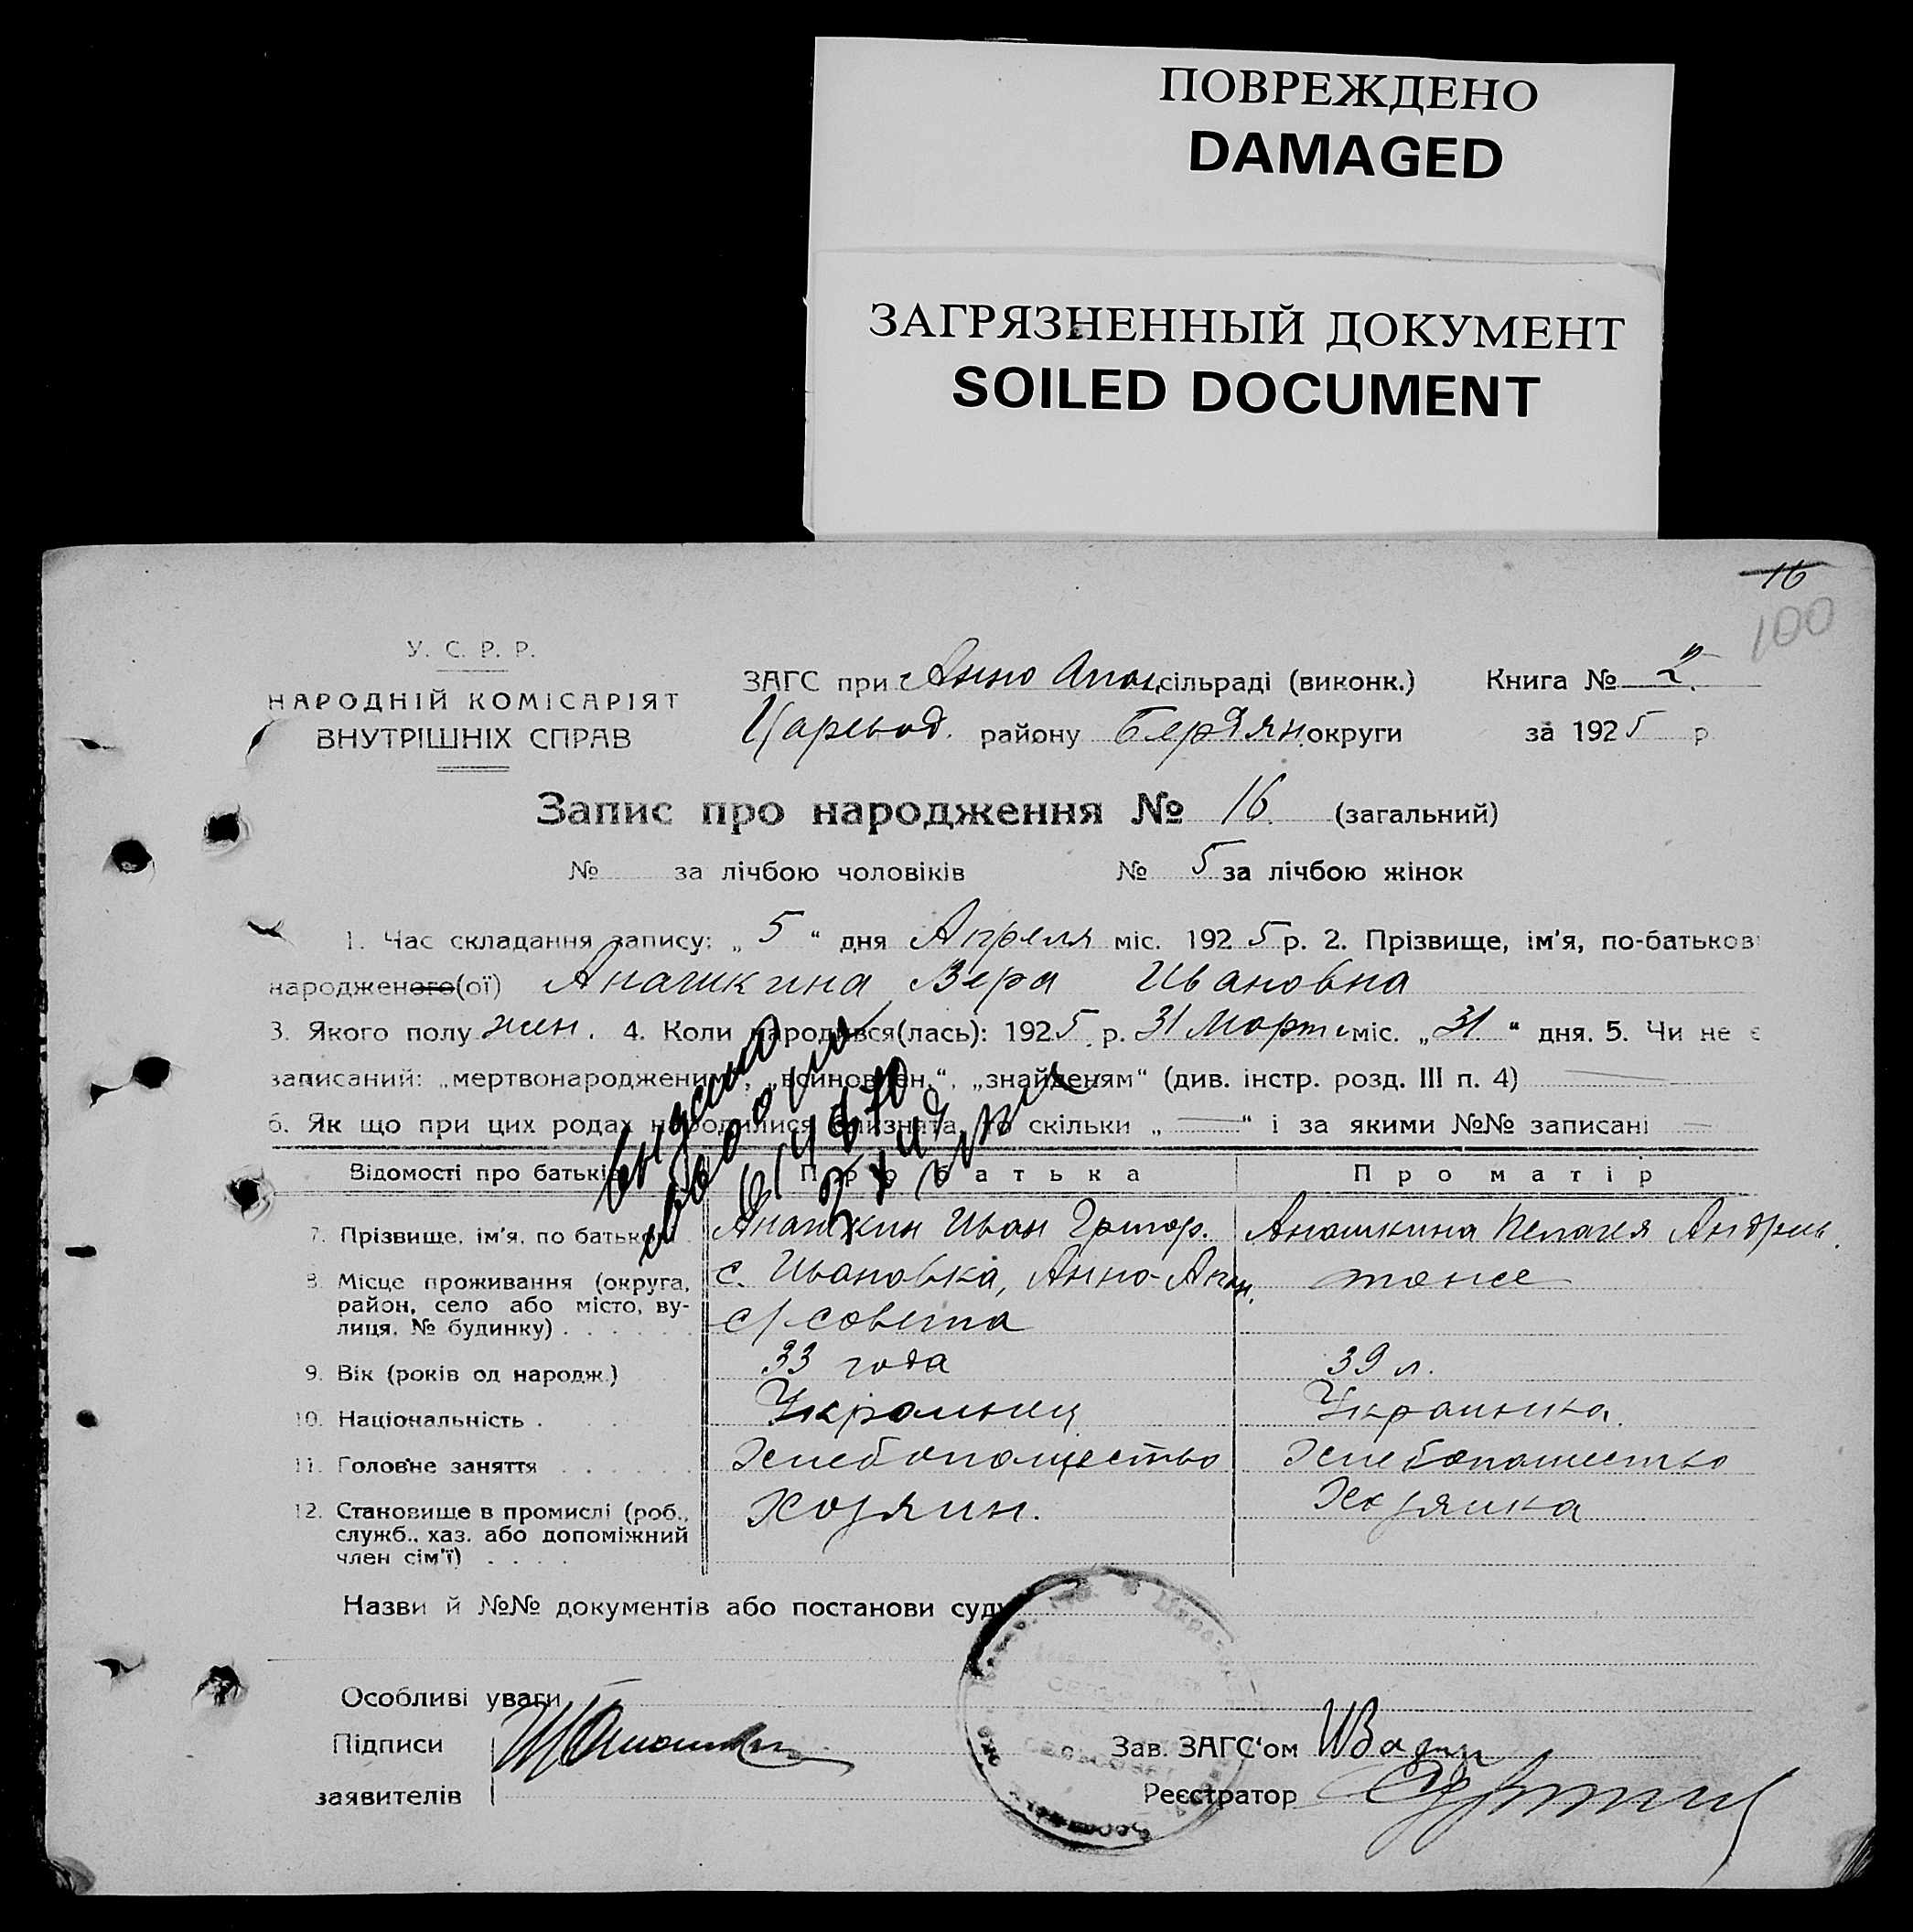 ПОВРЕЖДЕНО
DAMAGED
ЗАГРЯЗНЕННЫЙ ДОКУМЕНТ
SOILED DOCUMENT
16
100
У. С. Р. Р.
НАРОДНІЙ КОМІСАРІЯТ
ВНУТРІШНІХ СПРАВ
ЗАГС при Анно Апон. сільраді (виконк.) Книга № 2.
Царевод. району Бердян. округи за 1925 р
Запис про народження № 16. (загальний)
№ за лічбою чоловіків № 5 за лічбою жінок
1. Час складання запису: „ 5 “ дня Апреля міс. 1925 р. 2. Прізвище, ім'я, по-батькові
народженого(ої) Анашкина Вера Ивановна
3. Якого полу жен. 4. Коли народився(лась): 1925 р. 31 Марта міс. „31.“ дня. 5. Чи не є
записаний: „мертвонародженим“, „знайденям“ (див. інстр. розд. III п. 4)
6. Як що при цих родах народилися близнята, то скільки „ — “ і за якими №№ записані —
Відомості про батьків Про батька Про матір
7. Прізвище, ім'я, по батькові Анашкин Иван Григор. Анашкина Пелагея Андреев.
8. Місце проживання (округа, район, село або місто, вулиця, № будинку) с. Ивановка, Анно-Апон. с/совета тоже
9. Вік (років од народж.) 33 года 39 л.
10. Національність Украинец Украинка.
11. Головне заняття Хлебопашество Хлебопашество
12. Становище в промислі (роб., служб., хаз. або допоміжний член сім'ї) Хозяин. Хозяйка
Назви й №№ документів або постанови суду
Особливі уваги
Підписи
заявителів
Зав. ЗАГС'ом
Реєстратор